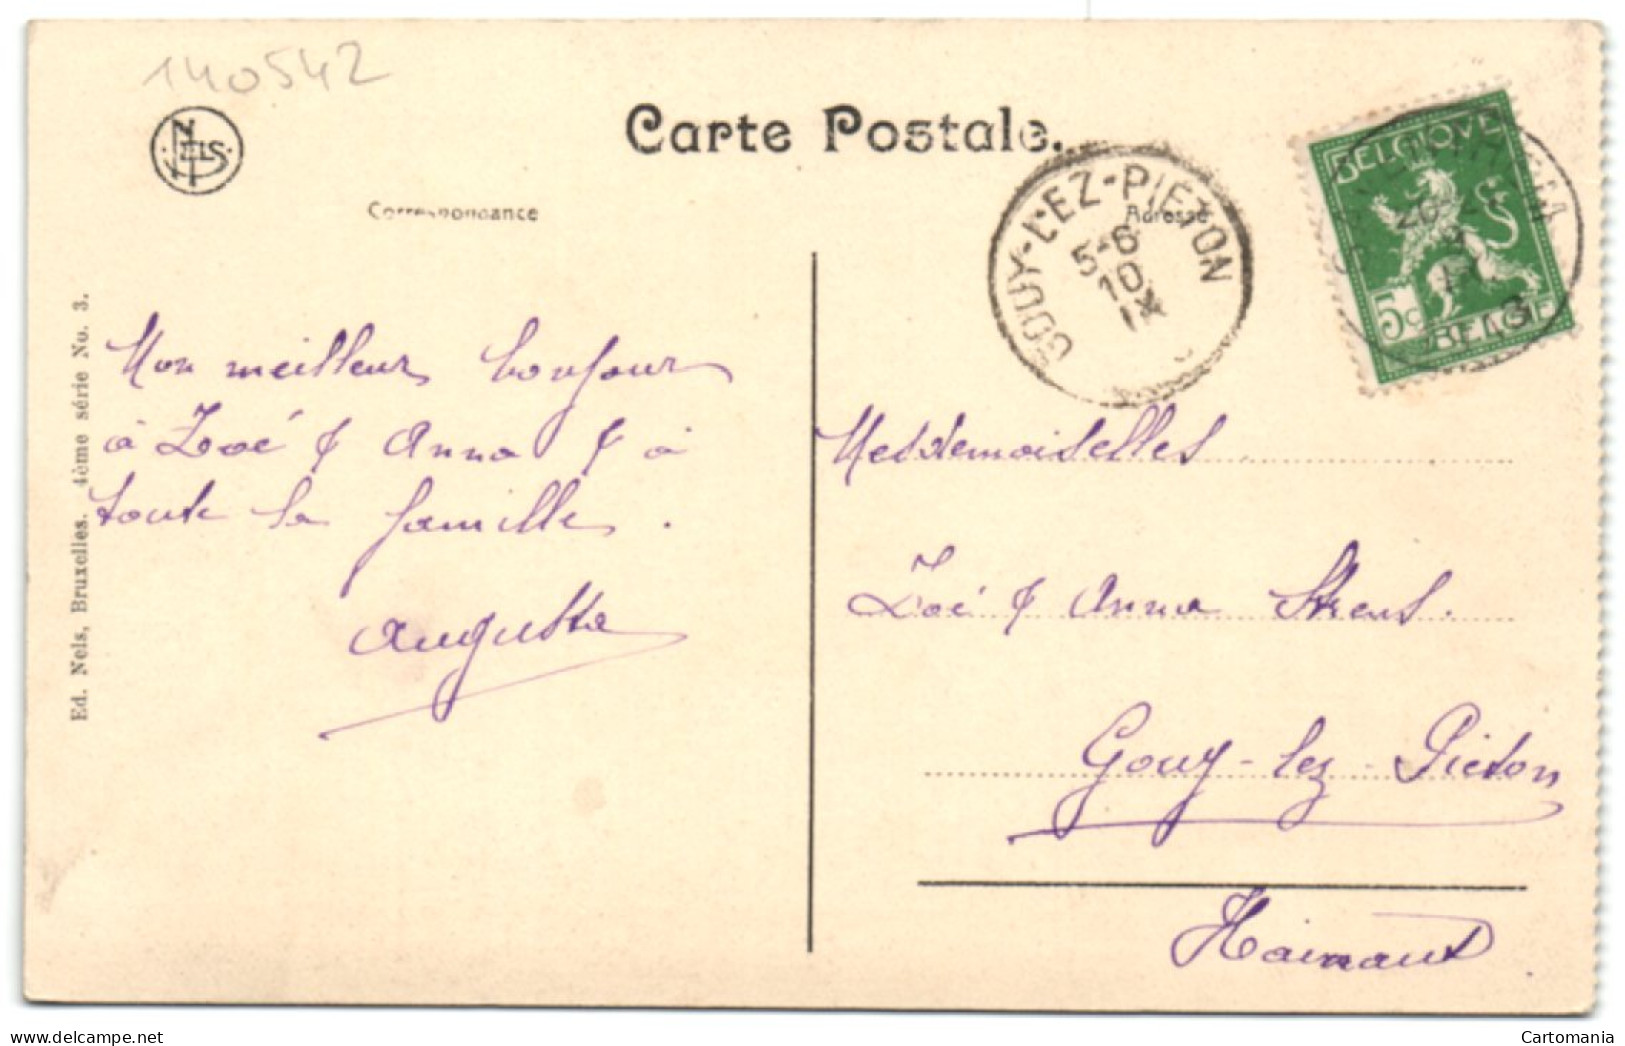 140542
NELS
Carte Postale.
Correspondance
Adresse
GOUY-LEZ-PIETON
5-6
10
IX
BELGIQUE
5c
BELGIË
Ed. Nels, Bruxelles. 4ème série No. 3.
Mon meilleur bonjour
à Zoé & Anna & à
toute la famille.
Augusta
Mesdemoiselles
Zoé & Anna
Gouy-lez-Piéton
Hainaut
www.delcampe.net
Cartomania